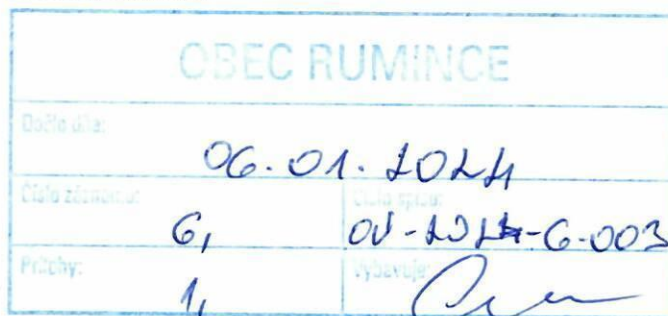 OBEC RUMINCE
Došlo dňa:
06.01.2024
Číslo záznamu: Číslo spisu:
6, OU-2024-6-003
Prílohy: Vybavuje:
1,